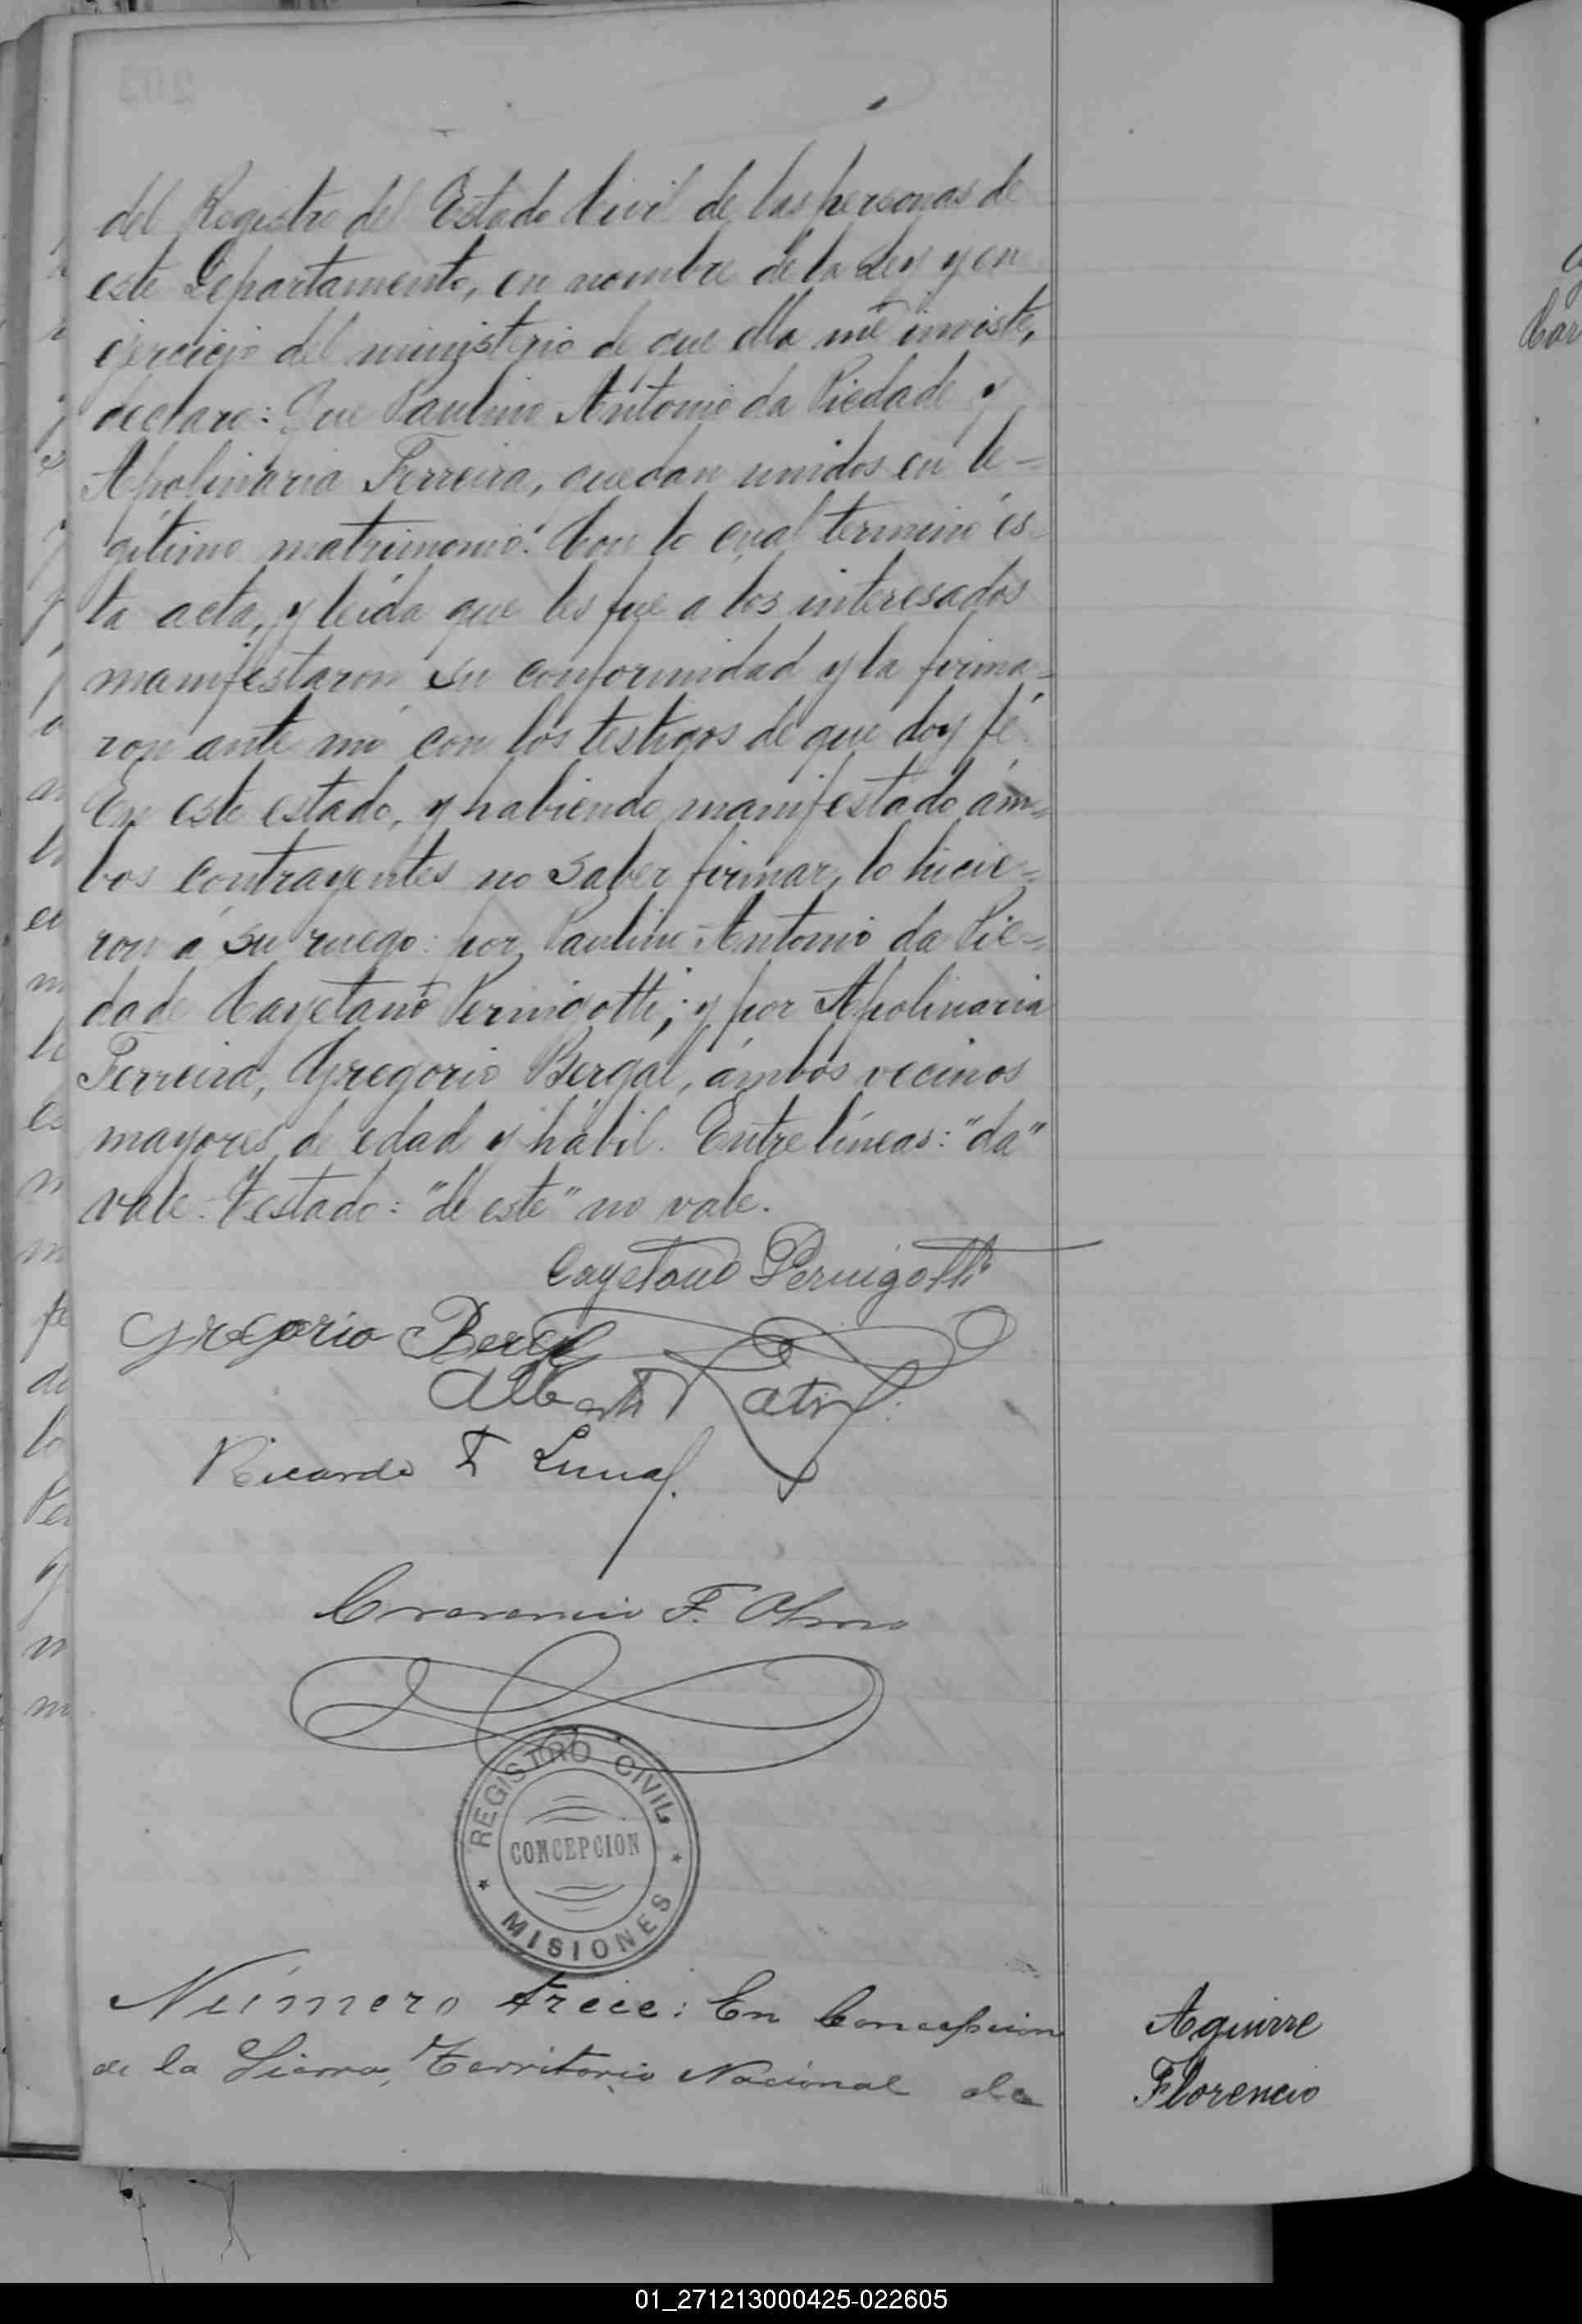 del Registro del Estado Civil de las personas de
este Departamento, en nombre de la Ley y en
ejercicio del ministerio de que ella me inviste,
declaro: Que Paulino Antonio da Piedade y
Apolinaria Ferreira, quedan unidos en le-
gítimo matrimonio. Con lo cual terminó és-
ta acta, y leída que les fue á los interesados
manifestaron su conformidad y la firma-
ron ante mi con los testigos de que doy fé.
En este estado, y habiendo manifestado ám-
bos contrayentes no saber firmar, lo hicie-
ron á su ruego: por Paulino Antonio da Pie-
dade Cayetano Pernigotti; y por Apolinaria
Ferreira, Gregorio Bergal, ámbos vecinos
mayores de edad y hábil. Entre líneas: "da"
vale. Testado: "de este" no vale.
Cayetano Pernigotti
Gregorio Bergal
Alberto
Ricardo F Luna
F.
REGISTRO CIVIL
CONCEPCION
MISIONES
Número trece: En Concepcion
de la Sierra, Territorio Nacional de
Aguirre
Florencio
01_271213000425-022605